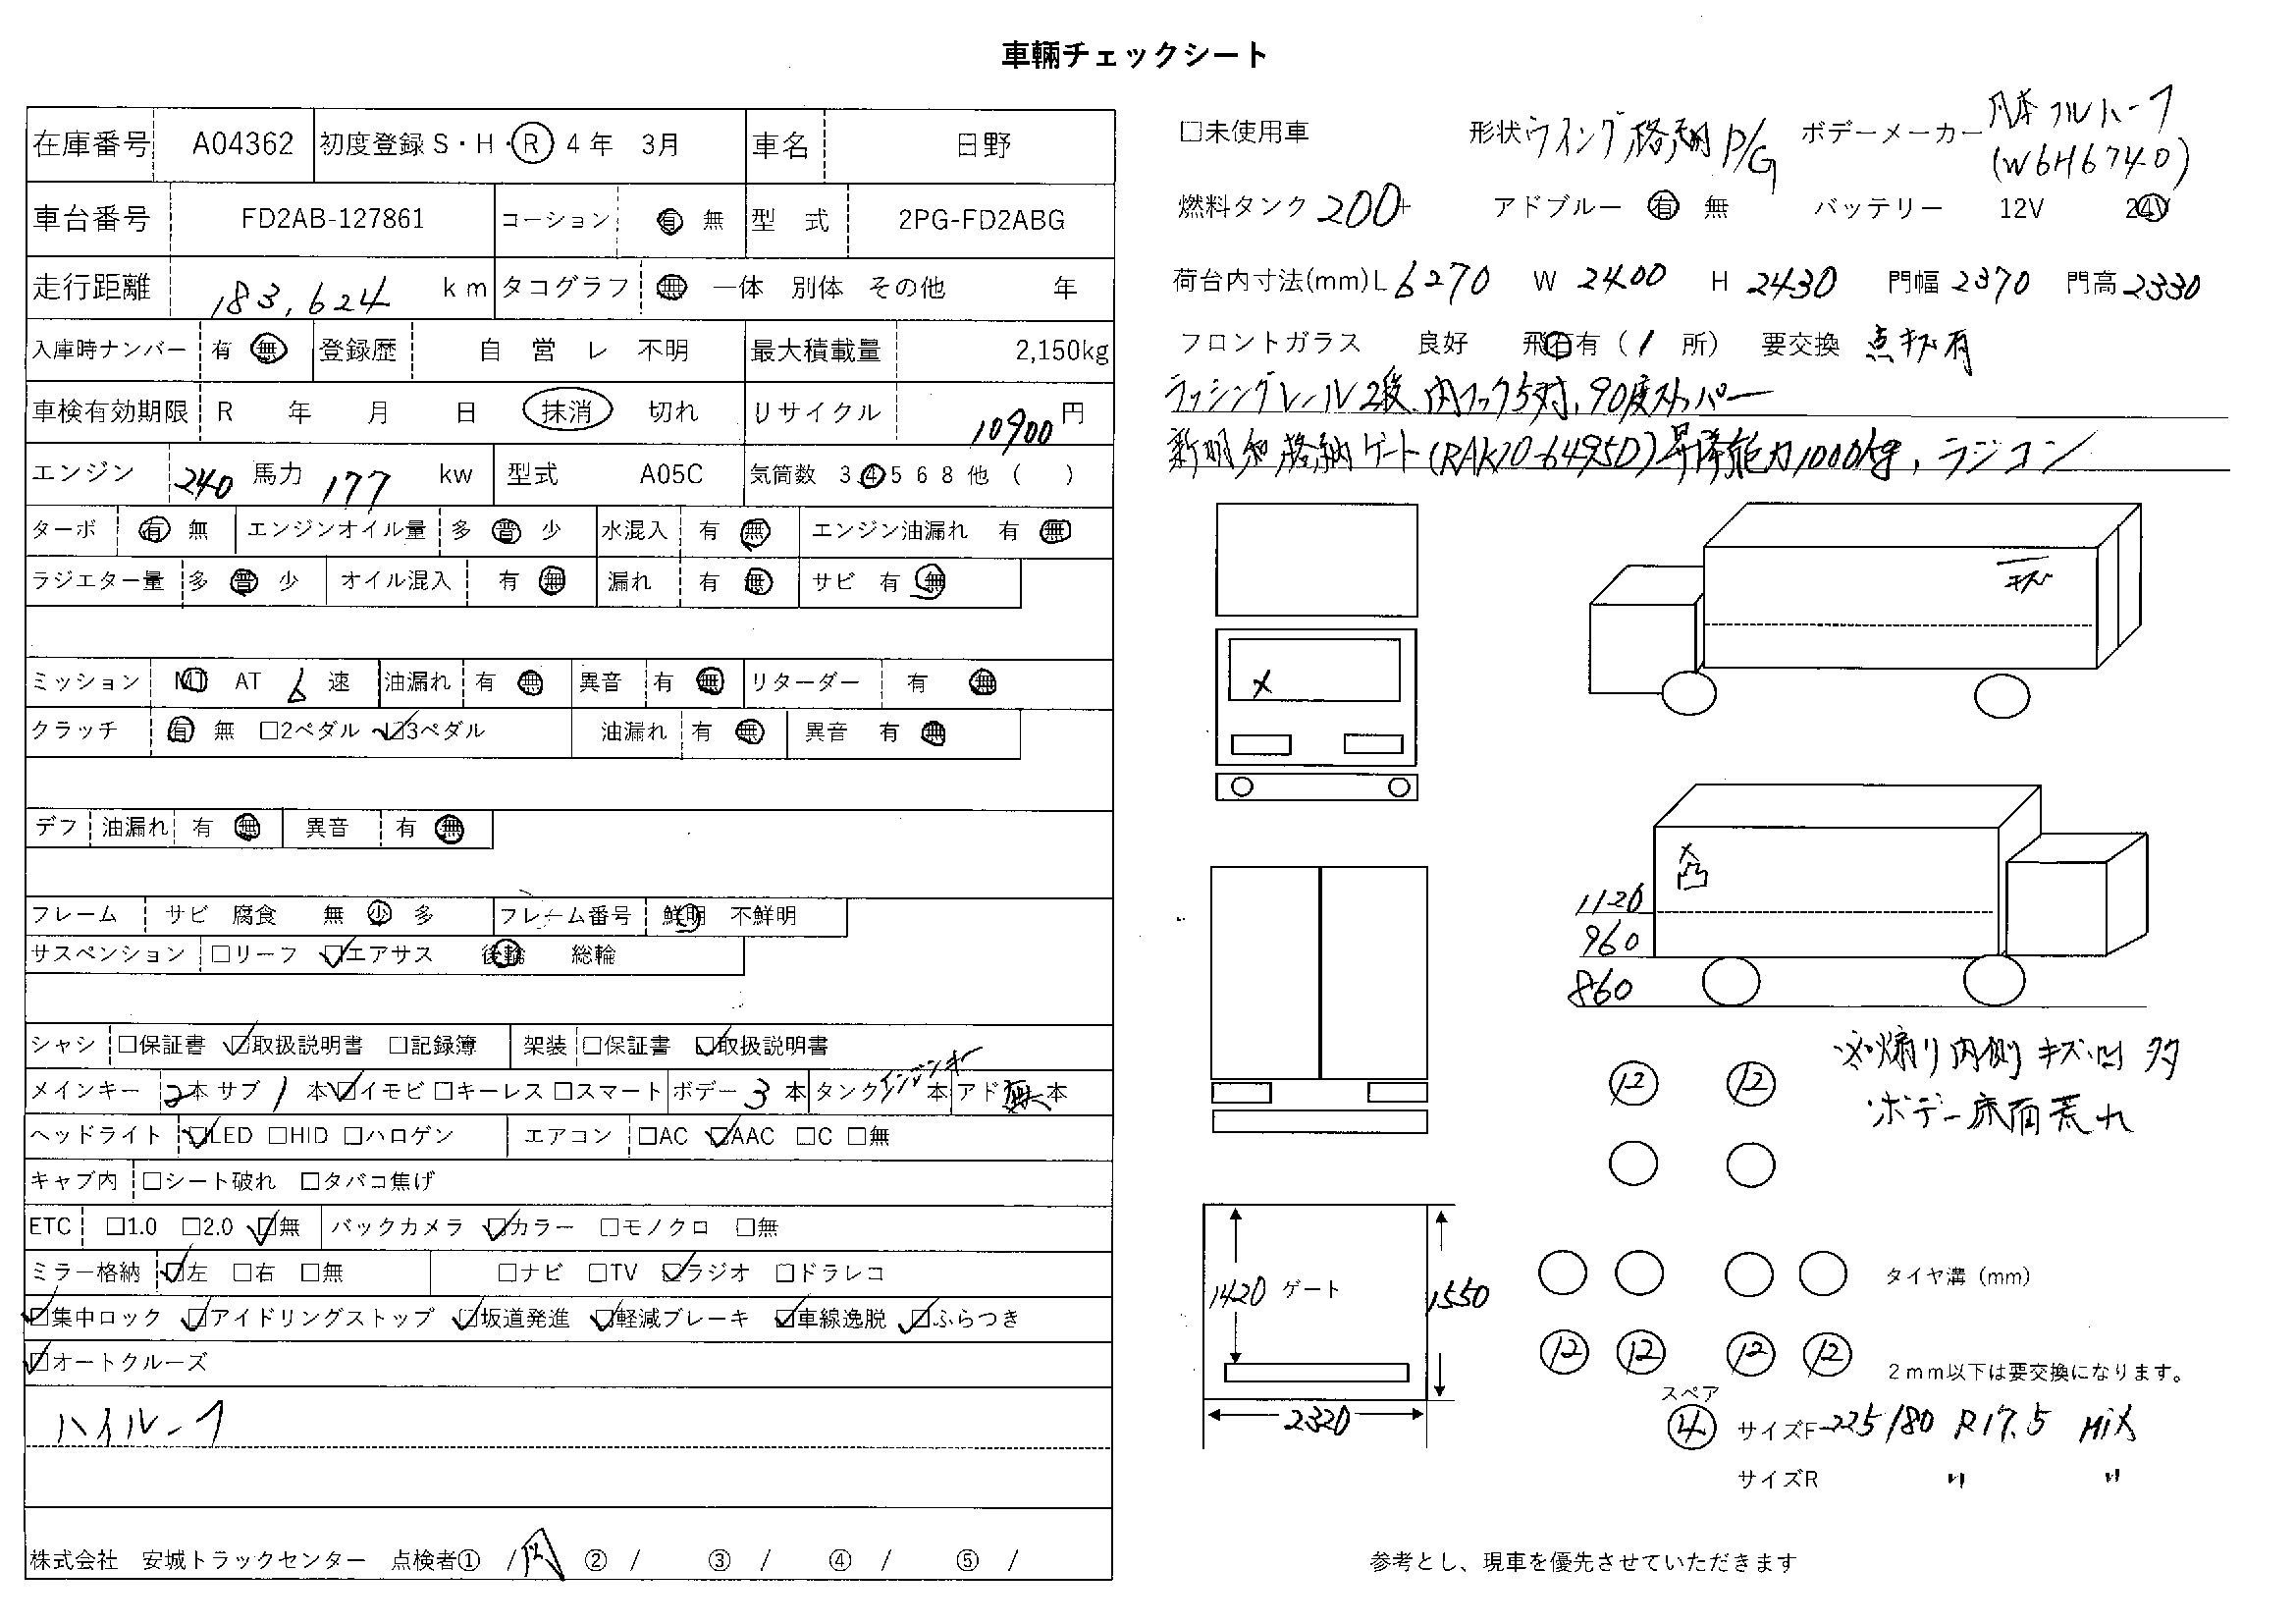 車輛チェックシート
在庫番号 A04362 初度登録 S・H・R 4年 3月 車名 日野
車台番号 FD2AB-127861 コーション 有 無 型 式 2PG-FD2ABG
走行距離 183,624 km タコグラフ 無 一体 別体 その他 年
入庫時ナンバー 有 無 登録歴 自 営 レ 不明 最大積載量 2,150kg
車検有効期限 R 年 月 日 抹消 切れ リサイクル 10900 円
エンジン 240 馬力 177 kw 型式 A05C 気筒数 3 4 5 6 8 他 ( )
ターボ 有 無 エンジンオイル量 多 普 少 水混入 有 無 エンジン油漏れ 有 無
ラジエター量 多 普 少 オイル混入 有 無 漏れ 有 無 サビ 有 無
ミッション MT AT 6 速 油漏れ 有 無 異音 有 無 リターダー 有 無
クラッチ 有 無 □2ペダル ☑3ペダル 油漏れ 有 無 異音 有 無
デフ 油漏れ 有 無 異音 有 無
フレーム サビ 腐食 無 少 多 フレーム番号 鮮明 不鮮明
サスペンション □リーフ ☑エアサス 後輪 総輪
シャシ □保証書 ☑取扱説明書 □記録簿 架装 □保証書 ☑取扱説明書
メインキー 2本 サブ 1 本 ☑イモビ □キーレス □スマート ボデー 3 本 タンク エンジンキー 本 アド 無 本
ヘッドライト ☑LED □HID □ハロゲン エアコン □AC ☑AAC □C □無
キャブ内 □シート破れ □タバコ焦げ
ETC □1.0 □2.0 ☑無 バックカメラ ☑カラー □モノクロ □無
ミラー格納 ☑左 □右 □無 □ナビ □TV ☑ラジオ □ドラレコ
☑集中ロック ☑アイドリングストップ ☑坂道発進 ☑軽減ブレーキ ☑車線逸脱 ☑ふらつき
☑オートクルーズ
ハイルーフ
株式会社 安城トラックセンター 点検者① / ② / ③ / ④ / ⑤ /
□未使用車 形状 ウイング格納P/G ボデーメーカー 日本フルハーフ
(W6H6740)
燃料タンク 200 アドブルー 有 無 バッテリー 12V 24V
荷台内寸法(mm) L 6270 W 2400 H 2430 門幅 2370 門高 2330
フロントガラス 良好 飛石有 ( 1 所) 要交換 点キズ有
ラッシングレール2段、内フック5対、90度ストッパー
新明和格納ゲート(RAK10-6495D)昇降能力1000kg, ラジコン
キズ
1120
960
860
※煽り内側キズ凹多
ボデー床面荒れ
12 12
1420 ゲート 1550
2320
タイヤ溝（mm）
12 12 12 12
２mm以下は要交換になります。
スペア
4 サイズF 225/80 R17.5 MIX
サイズR 〃 〃
参考とし、現車を優先させていただきます